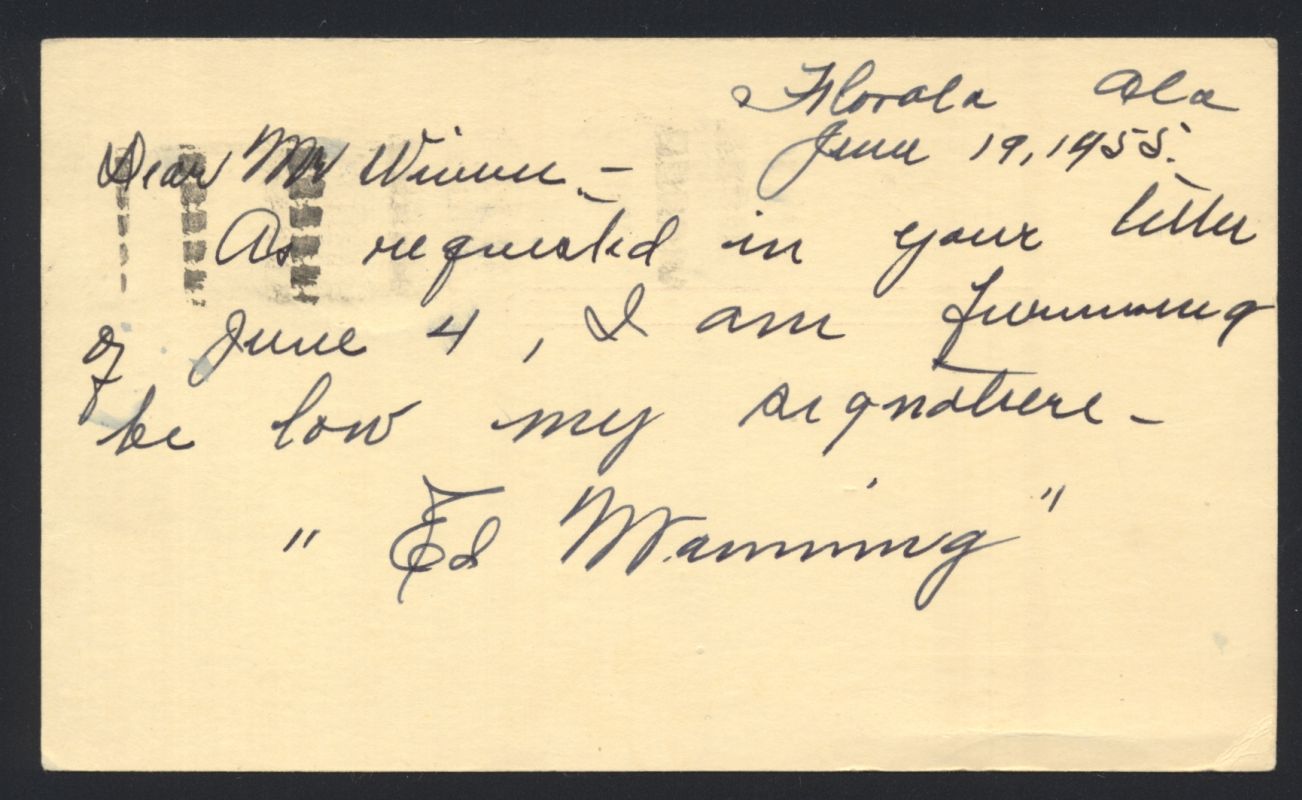 Florala Ala
June 19, 1955.
Dear Mr -
As requested in your letter
of June 4, I am
be low my signature -
" Ed Manning "